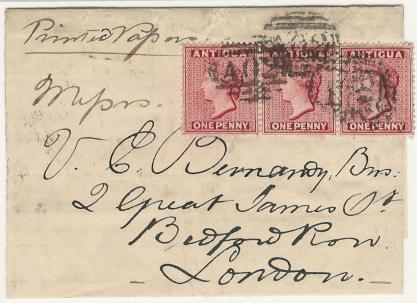 Printed Papers
ANTIGUA ANTIGUA ANTIGUA
A02
ONE PENNY ONE PENNY ONE PENNY
Messrs.
V. E. Bernandy, Bros:
2 Great James St
Bedford Row.
London.